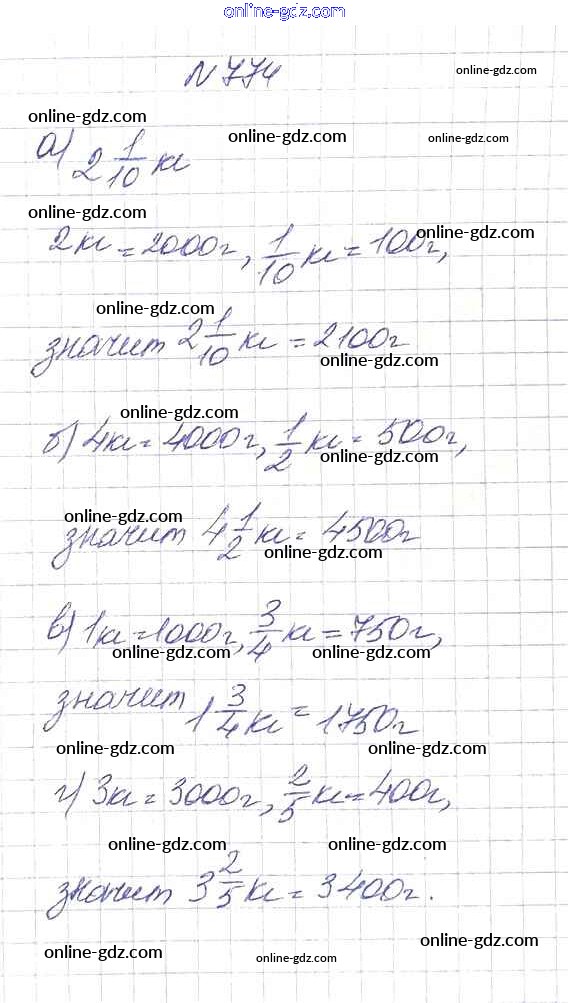 online-gdz.com
N 774
online-gdz.com
online-gdz.com
а) 2 1/10 кг
online-gdz.com
online-gdz.com
online-gdz.com
2 кг = 2000 г, 1/10 кг = 100 г,
online-gdz.com
online-gdz.com
значит 2 1/10 кг = 2100 г
online-gdz.com
online-gdz.com
б) 4 кг = 4000 г, 1/2 кг = 500 г,
online-gdz.com
online-gdz.com
значит 4 1/2 кг = 4500 г
online-gdz.com
в) 1 кг = 1000 г, 3/4 кг = 750 г,
online-gdz.com
online-gdz.com
значит 1 3/4 кг = 1750 г
online-gdz.com
online-gdz.com
г) 3 кг = 3000 г, 2/5 кг = 400 г,
online-gdz.com
online-gdz.com
значит 3 2/5 кг = 3400 г.
online-gdz.com
online-gdz.com
online-gdz.com